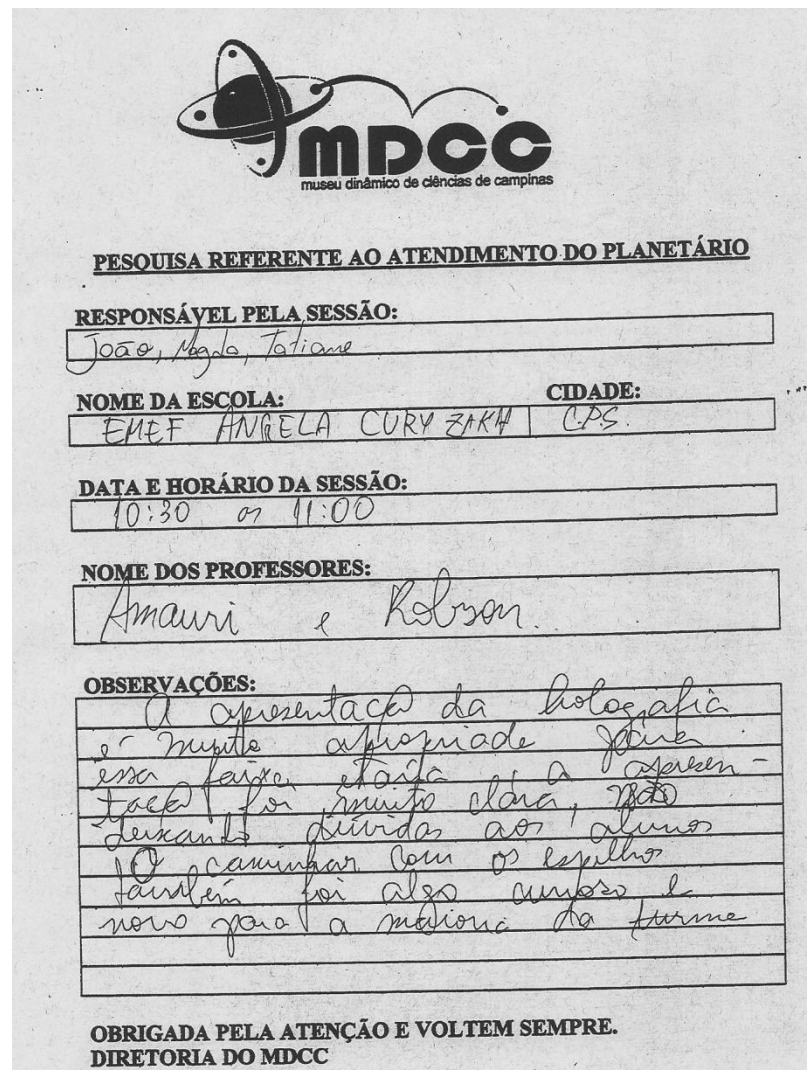 MDCC
museu dinâmico de ciências de campinas
PESQUISA REFERENTE AO ATENDIMENTO DO PLANETÁRIO
RESPONSÁVEL PELA SESSÃO:
João, Magda, Tatiane
NOME DA ESCOLA: CIDADE:
EMEF ANGELA CURY ZAKIA CPS.
DATA E HORÁRIO DA SESSÃO:
10:30 as 11:00
NOME DOS PROFESSORES:
Amauri e Robson.
OBSERVAÇÕES:
A apresentação da holografia
é muito apropriada para
essa faixa etária, a apresen-
tação foi muito clara, não
deixando dúvidas aos alunos
O caminhar com os espelhos
também foi algo curioso e
novo para a maioria da turma
OBRIGADA PELA ATENÇÃO E VOLTEM SEMPRE.
DIRETORIA DO MDCC